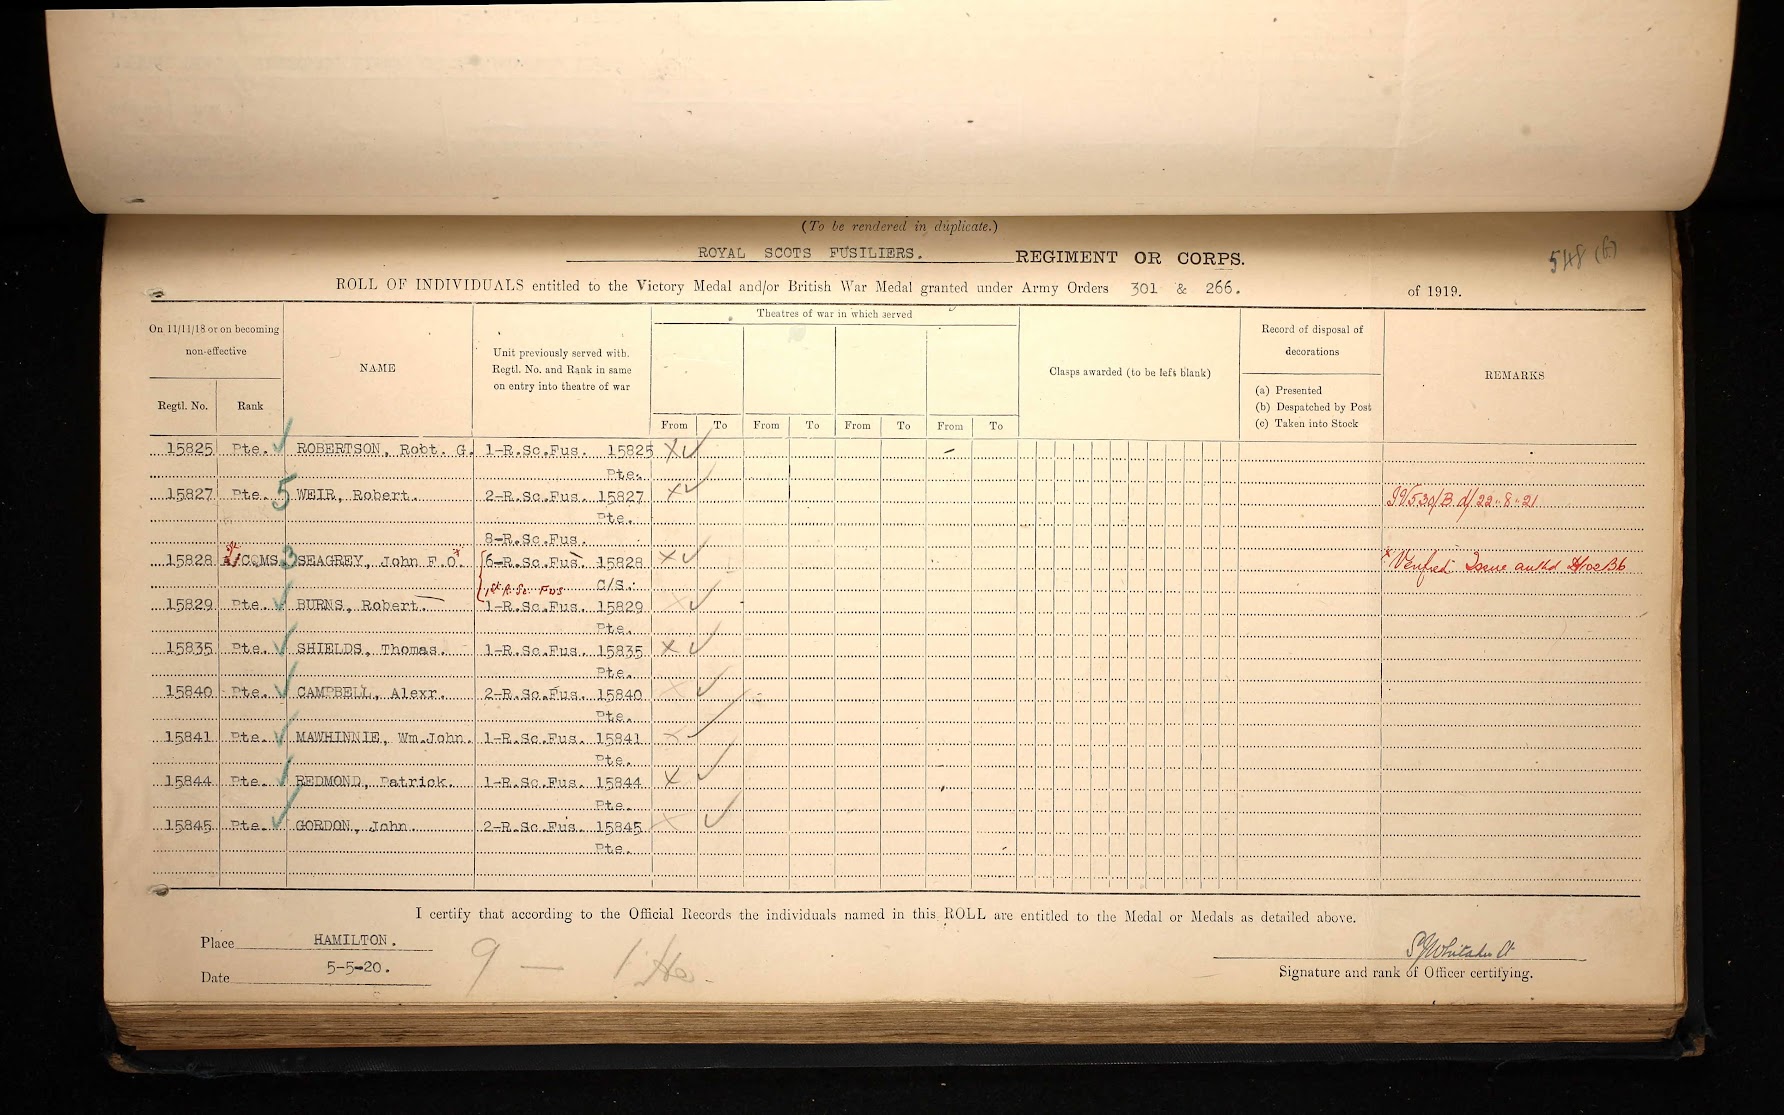 (To be rendered in duplicate.)
ROYAL SCOTS FUSILIERS. REGIMENT OR CORPS.
548 (b)
ROLL OF INDIVIDUALS entitled to the Victory Medal and/or British War Medal granted under Army Orders 301 & 266. of 1919.
On 11/11/18 or on becoming non-effective
Regtl. No. Rank
NAME
Unit previously served with. Regtl. No. and Rank in same on entry into theatre of war
Theatres of war in which served
From To From To From To From To
Clasps awarded (to be left blank)
Record of disposal of decorations
(a) Presented
(b) Despatched by Post
(c) Taken into Stock
REMARKS
15825 Pte. ✓ ROBERTSON, Robt. G. 1-R.Sc.Fus. 15825 X ✓
Pte.
15827 Pte. 5 WEIR, Robert. 2-R.Sc.Fus. 15827 X ✓ 22-8-21
Pte.
8-R.Sc.Fus.
15828 CQMS 3 SEAGREY, John F.O. x 6-R.Sc.Fus. 15828 X ✓ x Verified Issue authd
1st R. Sc. Fus C/S.
15829 Pte. ✓ BURNS, Robert. 1-R.Sc.Fus. 15829 X ✓
Pte.
15835 Pte. ✓ SHIELDS, Thomas. 1-R.Sc.Fus. 15835 X ✓
Pte.
15840 Pte. ✓ CAMPBELL, Alexr. 2-R.Sc.Fus. 15840 X ✓
Pte.
15841 Pte. ✓ MAWHINNIE, Wm.John. 1-R.Sc.Fus. 15841 X ✓
Pte.
15844 Pte. ✓ REDMOND, Patrick. 1-R.Sc.Fus. 15844 X ✓
Pte.
15845 Pte. ✓ GORDON, John. 2-R.Sc.Fus. 15845 X ✓
Pte.
I certify that according to the Official Records the individuals named in this ROLL are entitled to the Medal or Medals as detailed above.
Place HAMILTON.
Date 5-5-20.
9 —
Signature and rank of Officer certifying.